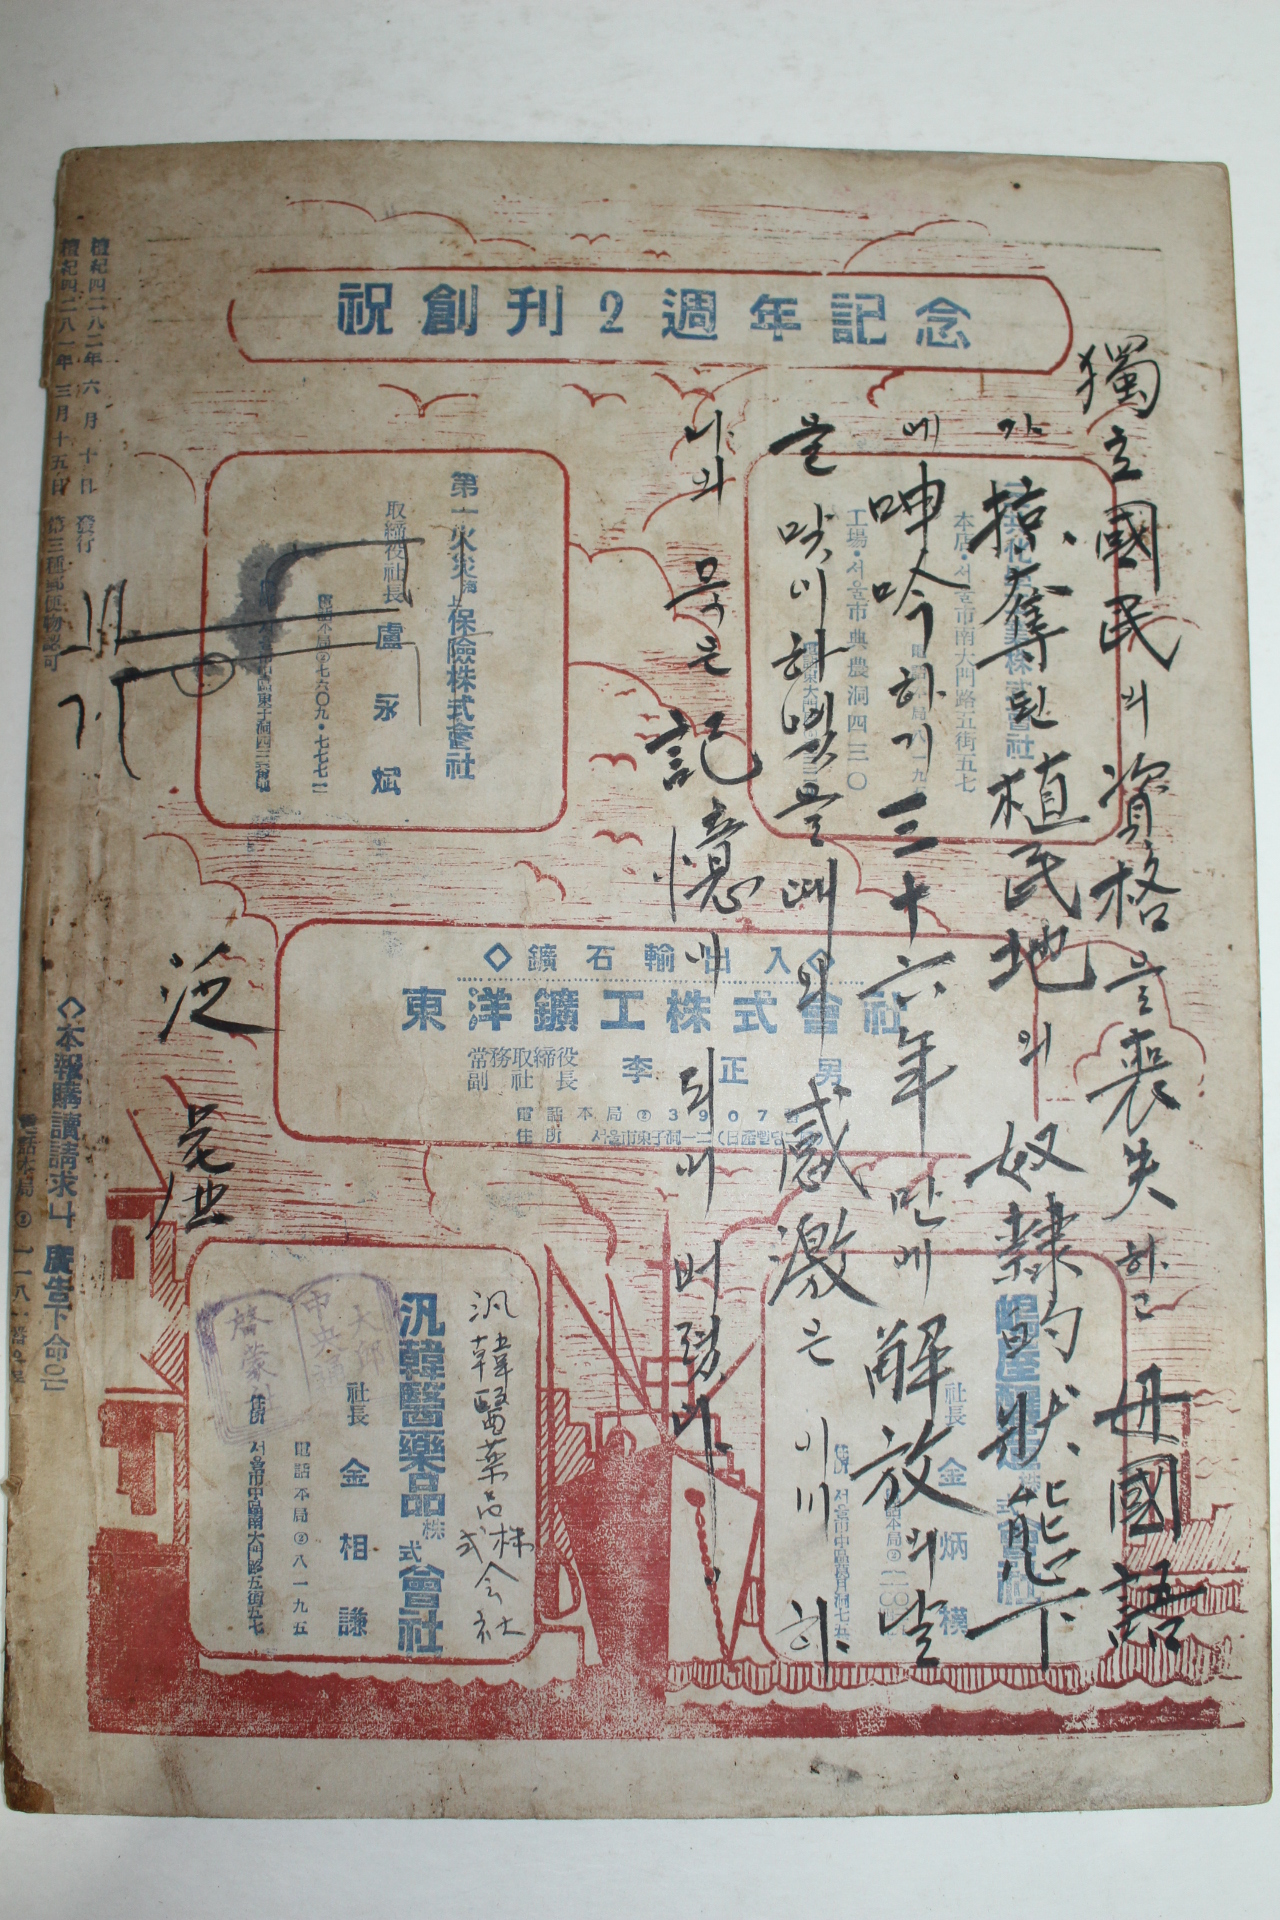 祝創刊2週年記念
獨立國民의資格을喪失하고 母國語
가 掠奪된植民地의 奴隸的狀態下
에 呻吟하기三十六年만에 解放의날
을 맞이하엿을때의 感激은 이미 하
나의 묵은 記憶이 되어 버렸다.
本店·서울市南大門路五街五七
工場·서울市典農洞四三〇
第一火災海上保險株式會社
取締役社長 盧永斌
電話本局②七六〇九·七七七一
◇鑛石輸出入◇
東洋鑛工株式會社
常務取締役
副社長
李正男
電話本局②3907番
社長 金炳模
汎韓醫藥品株式會社
汎韓醫藥品株式会社
社長 金相謙
電話本局②八一九五
住所 서울市中區南大門路五街五七
啓蒙
檀紀四二八二年六月十日 發行
檀紀四二八一年三月十五日 第三種郵便物認可
◇本報購讀請求나 廣告下命은
電話本局②一一八一番으로